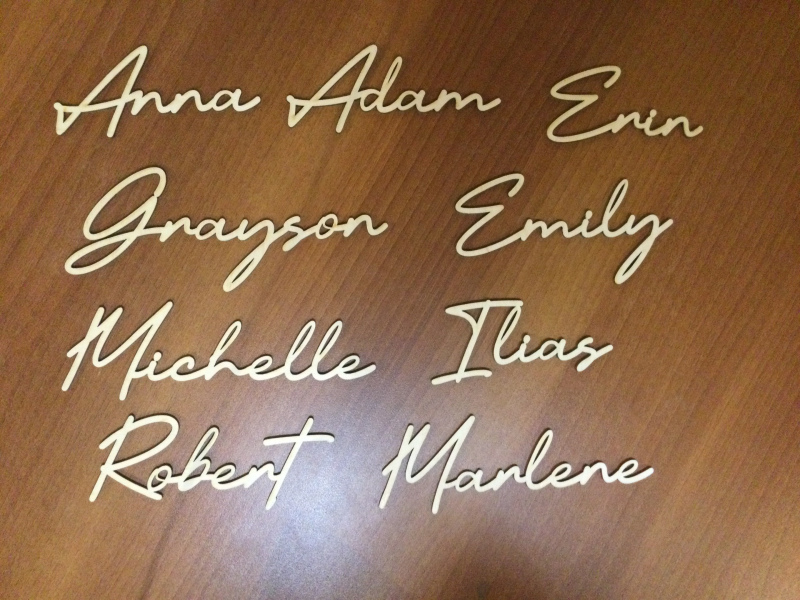 Anna Adam Erin
Grayson Emily
Michelle Ilias
Robert Marlene